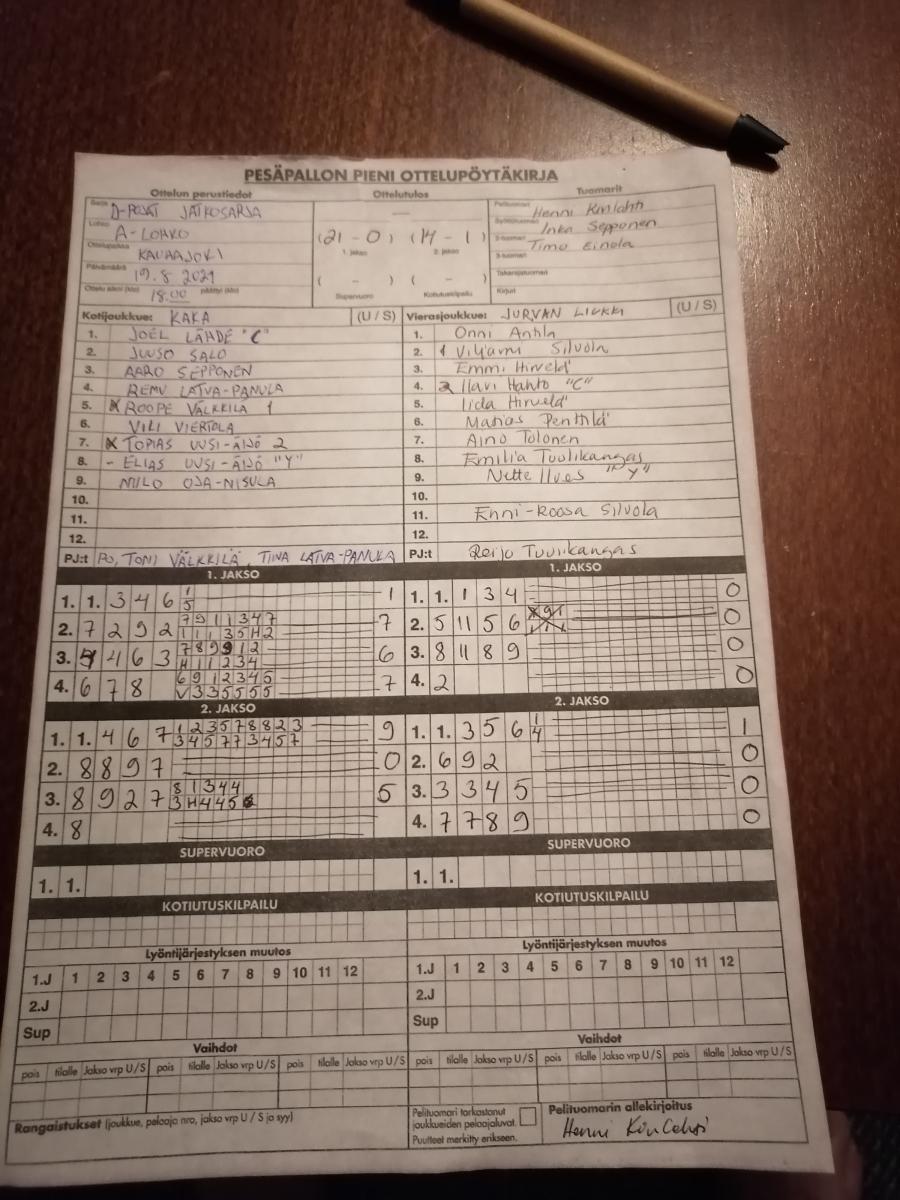 PESÄPALLON PIENI OTTELUPÖYTÄKIRJA
Ottelun perustiedot Ottelutulos Tuomarit
Sarja D-POJAT JATKOSARJA
Lohko A-LOHKO
Ottelupaikka KAUHAJOKI
Päivämäärä 19.8 2021
Ottelu alkoi (klo) 18.00 päättyi (klo)
(21 - 0) (14 - 1)
1. jakso 2. jakso
( - ) ( - )
Supervuoro Kotiutuskilpailu
Pelituomari Henni
Inka Sepponen
2-tuomari Timo Einola
3-tuomari
Takarajatuomari
Kirjuri
Kotijoukkue: KAKA (U / S)
1. JOEL LÄHDE "C"
2. JUUSO SALO
3. AARO SEPPONEN
4. REMU LATVA-PANULA
5. X ROOPE VÄLKKILÄ 1
6. VILI VIERTOLA
7. X TOPIAS UUSI-ÄIJÖ 2
8. - ELIAS UUSI-ÄIJÖ "Y"
9. MILO OJA-NISULA
10.
11.
12.
PJ:t PO, TONI VÄLKKILÄ, TIINA LATVA-PANULA
Vierasjoukkue: JURVAN LIEKKI (U / S)
1. Onni Anhla
2. 1 Viljami Silvola
3. Emmi Hirvelä
4. 2 Ilari Hahto "C"
5. Iida Hirvelä
6. Matias Penttilä
7. Aino Tolonen
8. Emilia Tuulikangas
9. Nette Ilves "Y"
10.
11. Enni-Roosa Silvola
12.
PJ:t Reijo Tuulikangas
1. JAKSO
1. 1. 3 4 6 1 1
5
2. 7 2 9 2 7 9 1 1 1 3 4 7 7
1 1 1 3 5 H 2
3. 4 4 6 3 7 8 9 9 1 2 6
H 1 1 2 3 4
4. 6 7 8 6 9 1 2 3 4 5 7
V 3 3 5 5 5 5
1. JAKSO
1. 1. 1 3 4 0
2. 5 11 5 6 0
3. 8 11 8 9 0
4. 2 0
2. JAKSO
1. 1. 4 6 7 1 2 3 5 7 8 8 2 3 9
3 4 5 7 7 3 4 5 7
2. 8 8 9 7 0
3. 8 9 2 7 8 1 3 4 4 5
3 H 4 4 5
4. 8
2. JAKSO
1. 1. 3 5 6 1 1
4
2. 6 9 2 0
3. 3 3 4 5 0
4. 7 7 8 9 0
SUPERVUORO
1. 1.
SUPERVUORO
1. 1.
KOTIUTUSKILPAILU
KOTIUTUSKILPAILU
Lyöntijärjestyksen muutos
1.J 1 2 3 4 5 6 7 8 9 10 11 12
2.J
Sup
Lyöntijärjestyksen muutos
1.J 1 2 3 4 5 6 7 8 9 10 11 12
2.J
Sup
Vaihdot
pois tilalle Jakso vrp U / S pois tilalle Jakso vrp U / S pois tilalle Jakso vrp U / S
Vaihdot
pois tilalle Jakso vrp U / S pois tilalle Jakso vrp U / S pois tilalle Jakso vrp U / S
Rangaistukset (joukkue, pelaaja nro, jakso vrp U / S ja syy)
Pelituomari tarkastanut
joukkueiden pelaajaluvat.
Puutteet merkitty erikseen.
Pelituomarin allekirjoitus
Henni